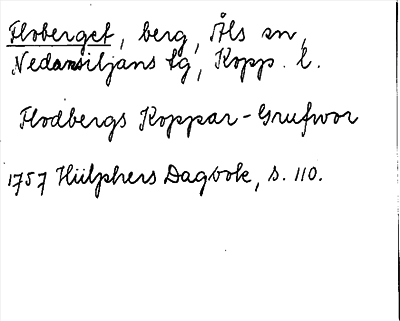 Floberget, berg, Åls sn,
Nedansiljans tg, Kopp. l.
Flodbergs Koppar-Grufwor
1757 Hülphers Dagbok, s. 110.